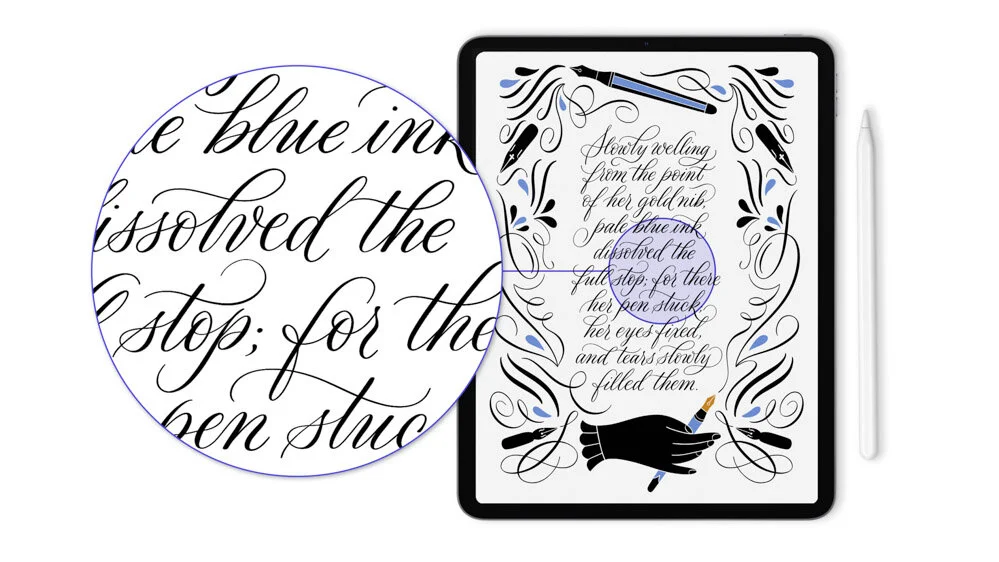 Slowly welling
from the point
of her gold nib,
pale blue ink
dissolved the
full stop; for there
her pen stuck;
her eyes fixed,
and tears slowly
filled them.
blue ink
issolved the
stop; for the
pen stuc